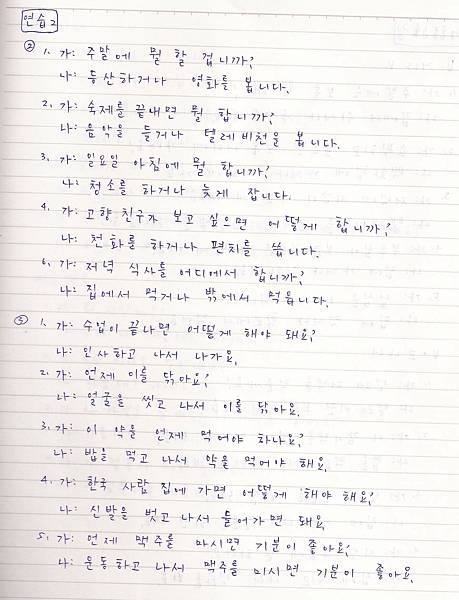 연습 2
② 1. 가: 주말에 뭘 할 겁니까?
나: 등산하거나 영화를 봅니다.
2. 가: 숙제를 끝내면 뭘 합니까?
나: 음악을 들거나 텔레비전을 봅니다.
3. 가: 일요일 아침에 뭘 합니까?
나: 청소를 하거나 늦게 잡니다.
4. 가: 고향 친구가 보고 싶으면 어떻게 합니까?
나: 전화를 하거나 편지를 씁니다.
6. 가: 저녁 식사를 어디에서 합니까?
나: 집에서 먹거나 밖에서 먹읍니다.
③ 1. 가: 수업이 끝나면 어떻게 해야 돼요?
나: 인사하고 나서 나가요.
2. 가: 언제 이를 닦아요?
나: 얼굴을 씻고 나서 이를 닦아요.
3. 가: 이 약을 언제 먹어야 하나요?
나: 밥을 먹고 나서 약을 먹어야 해요.
4. 가: 한국 사람 집에 가면 어떻게 해야 해요?
나: 신발을 벗고 나서 들어가면 돼요.
5. 가: 언제 맥주를 마시면 기분이 좋아요?
나: 운동하고 나서 맥주를 마시면 기분이 좋아요.